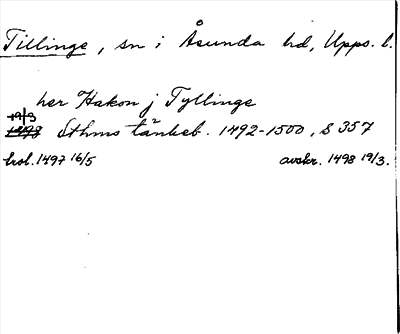 Tillinge, sn i Åsunda hd, Upps. l.
her Hakon j Tyllinge
19/3
1498 Sthms tänkeb. 1492-1500, s 357
hol. 1497 16/5 avskr. 1498 19/3.